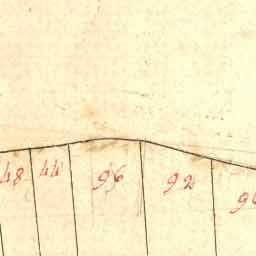 48 44 96 92